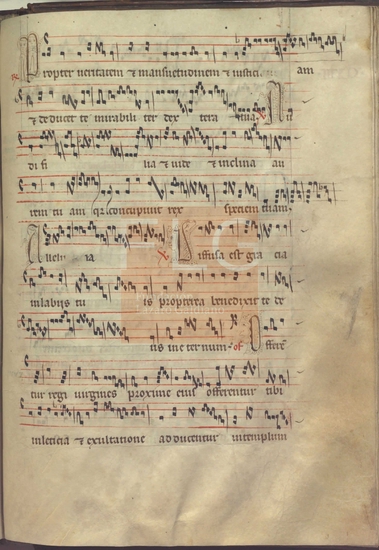 Propter ueritatem & mansuetudinem & iustici am
& deducet te mirabili ter dex tera tua
di fi lia & uide & inclina au
rem tu am q̄ concupiuit rex speciem tuam
Allelu ia Diffusa est gra cia
inlabiis tu is propterea benedixit te de
us ine ter num of Offeren
tur regi uirgines proxime eius offerentur tibi
inleticia & exultatione adducentur intemplum